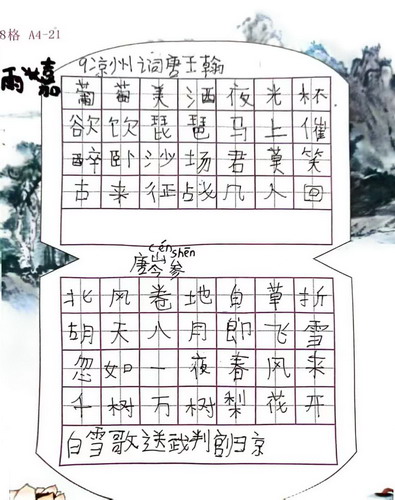 8格 A4-21
9凉州词唐王翰
葡萄美酒夜光杯
欲饮琵琶马上催
醉卧沙场君莫笑
古来征战几人回
cén shēn
唐岑参
北风卷地白草折
胡天八月即飞雪
忽如一夜春风来
千树万树梨花开
白雪歌送武判官归京